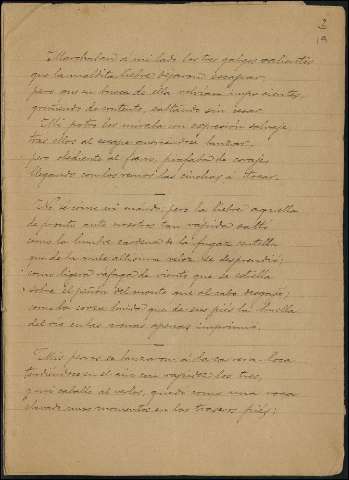 2
19
Marchaban á mi lado los tres galgos valientes
que la maldita liebre dejaron escapar,
pero que en busca de ella volvían impacientes,
gruñendo de contento, saltando sin cesar.
Mi potro los miraba con expresión salvaje
tras ellos al escape queriéndose lanzar,
pero obediente al freno, piafaba de coraje
llegando con los remos las cinchas á tocar.
No se como ni cuando; pero la liebre aquella
de pronto ante nosotros tan rápida saltó
como la lumbre cárdena de la fugaz centella
que de la nube altísima veloz se desprendió;
como ligera ráfaga de viento que se estrella
sobre el peñón del monte que al cabo
como la corza tímida que de sus piés la huella
del río en las arenas apenas imprimió.
Mis perros se lanzaron á la carrera loca
tendiéndose en el aire con rapidez los tres,
y mi caballo al verlos, quedó como una roca
elevado unos momentos en los traseros piés;